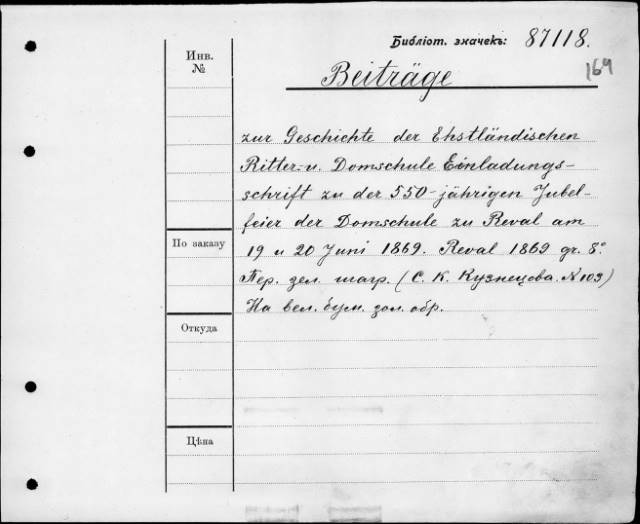 Библіот. значекъ: 87118.
164
Инв.
№
Beiträge
zur Geschichte der Ehstländischen
Ritter- u. Domschule Einladungs-
schrift zu der 550-jährigen Jubel-
feier der Domschule zu Reval am
19 u 20 Juni 1869. Reval 1869 gr. 8°
Пер. зел. шагр. (С. К. Кузнецова. №103)
На вел. бум. зол. обр.
По заказу
Откуда
Цѣна